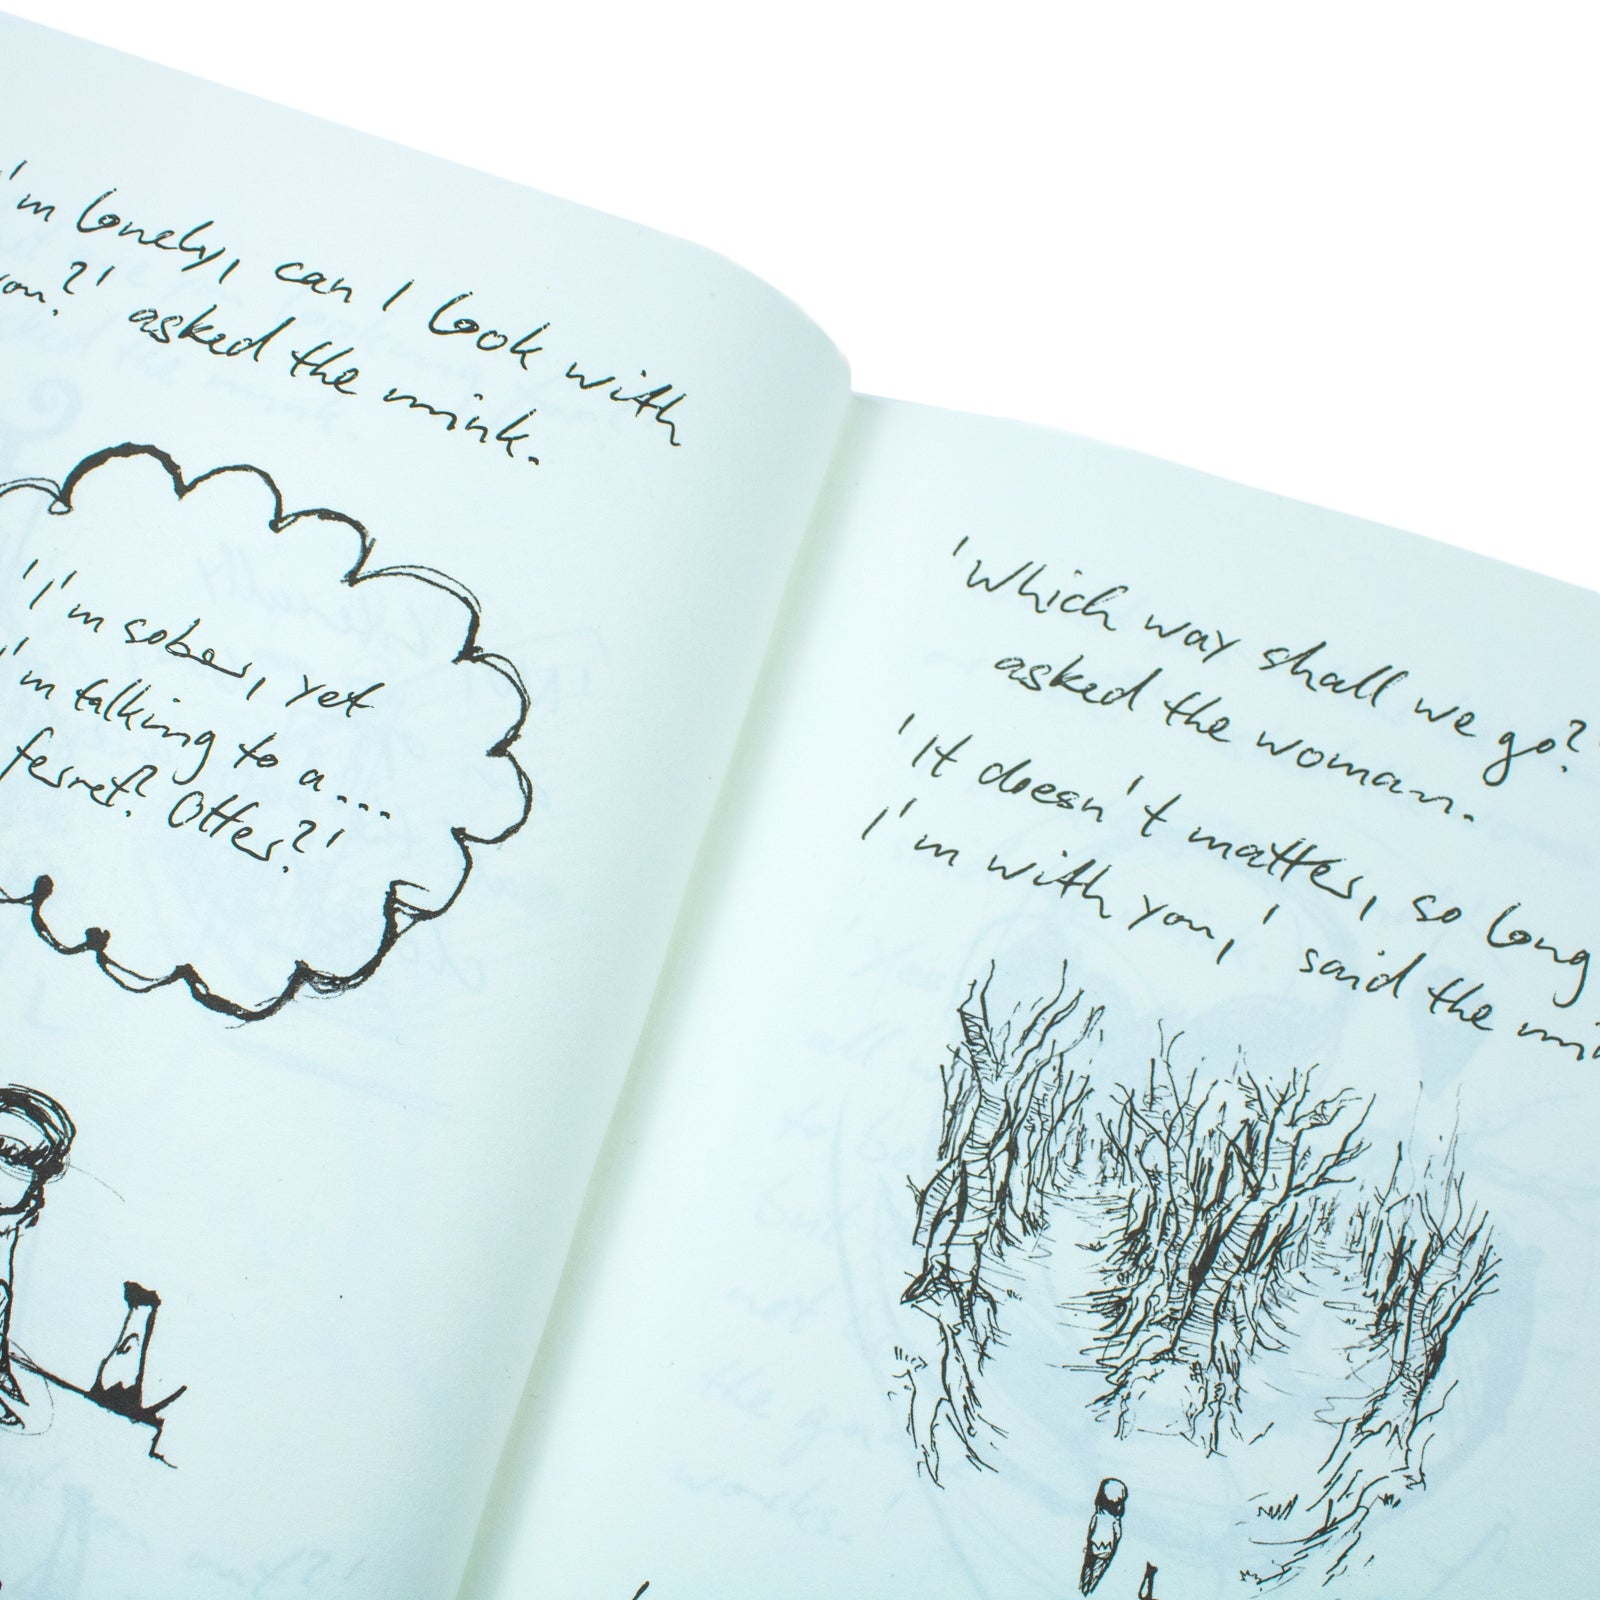 'm lonely, can I look with
you?' asked the mink.
'I'm sober, yet
I'm talking to a...
ferret? Otter?'
'Which way shall we go?'
asked the woman.
'It doesn't matter, so long
I'm with you,' said the